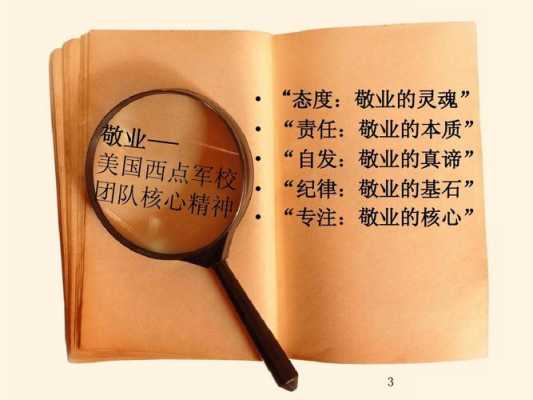 敬业—
美国西点军校
团队核心精神
• “态度：敬业的灵魂”
• “责任：敬业的本质”
• “自发：敬业的真谛”
• “纪律：敬业的基石”
• “专注：敬业的核心”
3